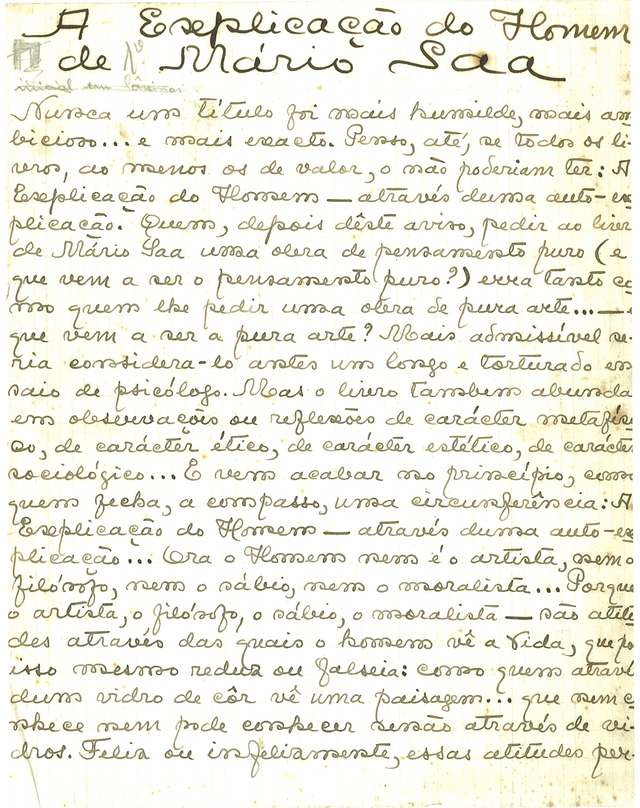 A Explicação do Homem
de Mário Saa
Nº
Nunca um título foi mais humilde, mais am
bicioso... e mais exacto. Penso, até, se todos os li-
vros, ao menos os de valor, o não poderiam ter: A
Explicação do Homem — através duma auto-ex
plicação. Quem, depois dêste aviso, pedir ao livro
de Mário Saa uma obra de pensamento puro (e
que vem a ser o pensamento puro?) erra tanto co
mo quem lhe pedir uma obra de pura arte... —
que vem a ser a pura arte? Mais admissível se-
ria considera-lo antes um longo e torturado en
saio de psicólogo. Mas o livro tambem abunda
em observações ou reflexões de carácter metafísi
co, de carácter ético, de carácter estético, de carácter
sociológico... E vem acabar no princípio, como
quem fecha, a compasso, uma circunferência: A
Explicação do Homem — através duma auto-ex
plicação... Ora o Homem nem é o artista, nem o
filósofo, nem o sábio, nem o moralista... Porque
o artista, o filósofo, o sábio, o moralista — são atitu
des através das quais o homem vê a Vida, que por
isso mesmo reduz ou falseia: como quem através
dum vidro de côr vê uma paisagem... que nem c
nhece nem pode conhecer senão através de vi-
dros. Feliz ou infelizmente, essas atitudes per-